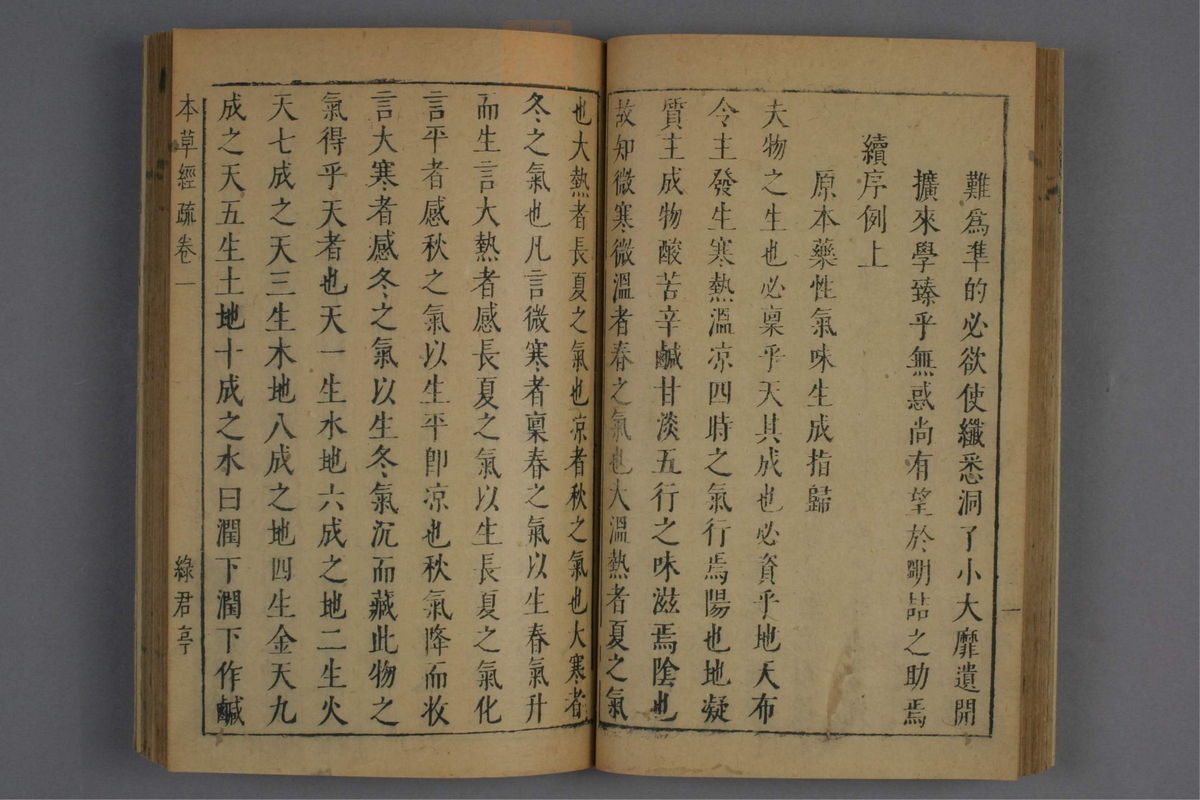 難為準的必欲使纖悉洞了小大靡遺開
擴來學臻乎無惑尚有望於明喆之助焉
續序例上
原本藥性氣味生成指歸
夫物之生也必稟乎天其成也必資乎地天布
令主發生寒熱溫凉四時之氣行焉陽也地凝
質主成物酸苦辛鹹甘淡五行之味滋焉陰也
故知微寒微溫者春之氣也大溫熱者夏之氣
也大熱者長夏之氣也凉者秋之氣也大寒者
冬之氣也凡言微寒者稟春之氣以生春氣升
而生言大熱者感長夏之氣以生長夏之氣化
言平者感秋之氣以生平卽凉也秋氣降而收
言大寒者感冬之氣以生冬氣沉而藏此物之
氣得乎天者也天一生水地六成之地二生火
天七成之天三生木地八成之地四生金天九
成之天五生土地十成之水曰潤下潤下作鹹
本草經疏卷一 綠君亭